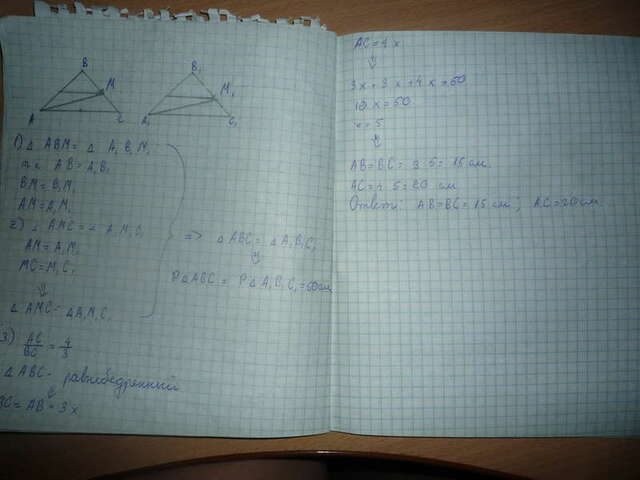 B
M
A
C
B₁
M₁
A₁
C₁
1) △ ABM = △ A₁B₁M₁
т.к. AB = A₁B₁
BM = B₁M₁
AM = A₁M₁
2) △ AMC = △ A₁M₁C₁
AM = A₁M₁
MC = M₁C₁
⇓
△ AMC = △ A₁M₁C₁
⇒ △ ABC = △ A₁B₁C₁
⇓
P△ABC = P△A₁B₁C₁ = 50 см
3) AC/BC = 4/3
△ ABC - равнобедренный
⇓
BC = AB = 3x
AC = 4x
⇓
3x + 3x + 4x = 50
10x = 50
x = 5
⇓
AB = BC = 3 · 5 = 15 см
AC = 4 · 5 = 20 см
Ответ: AB = BC = 15 см; AC = 20 см